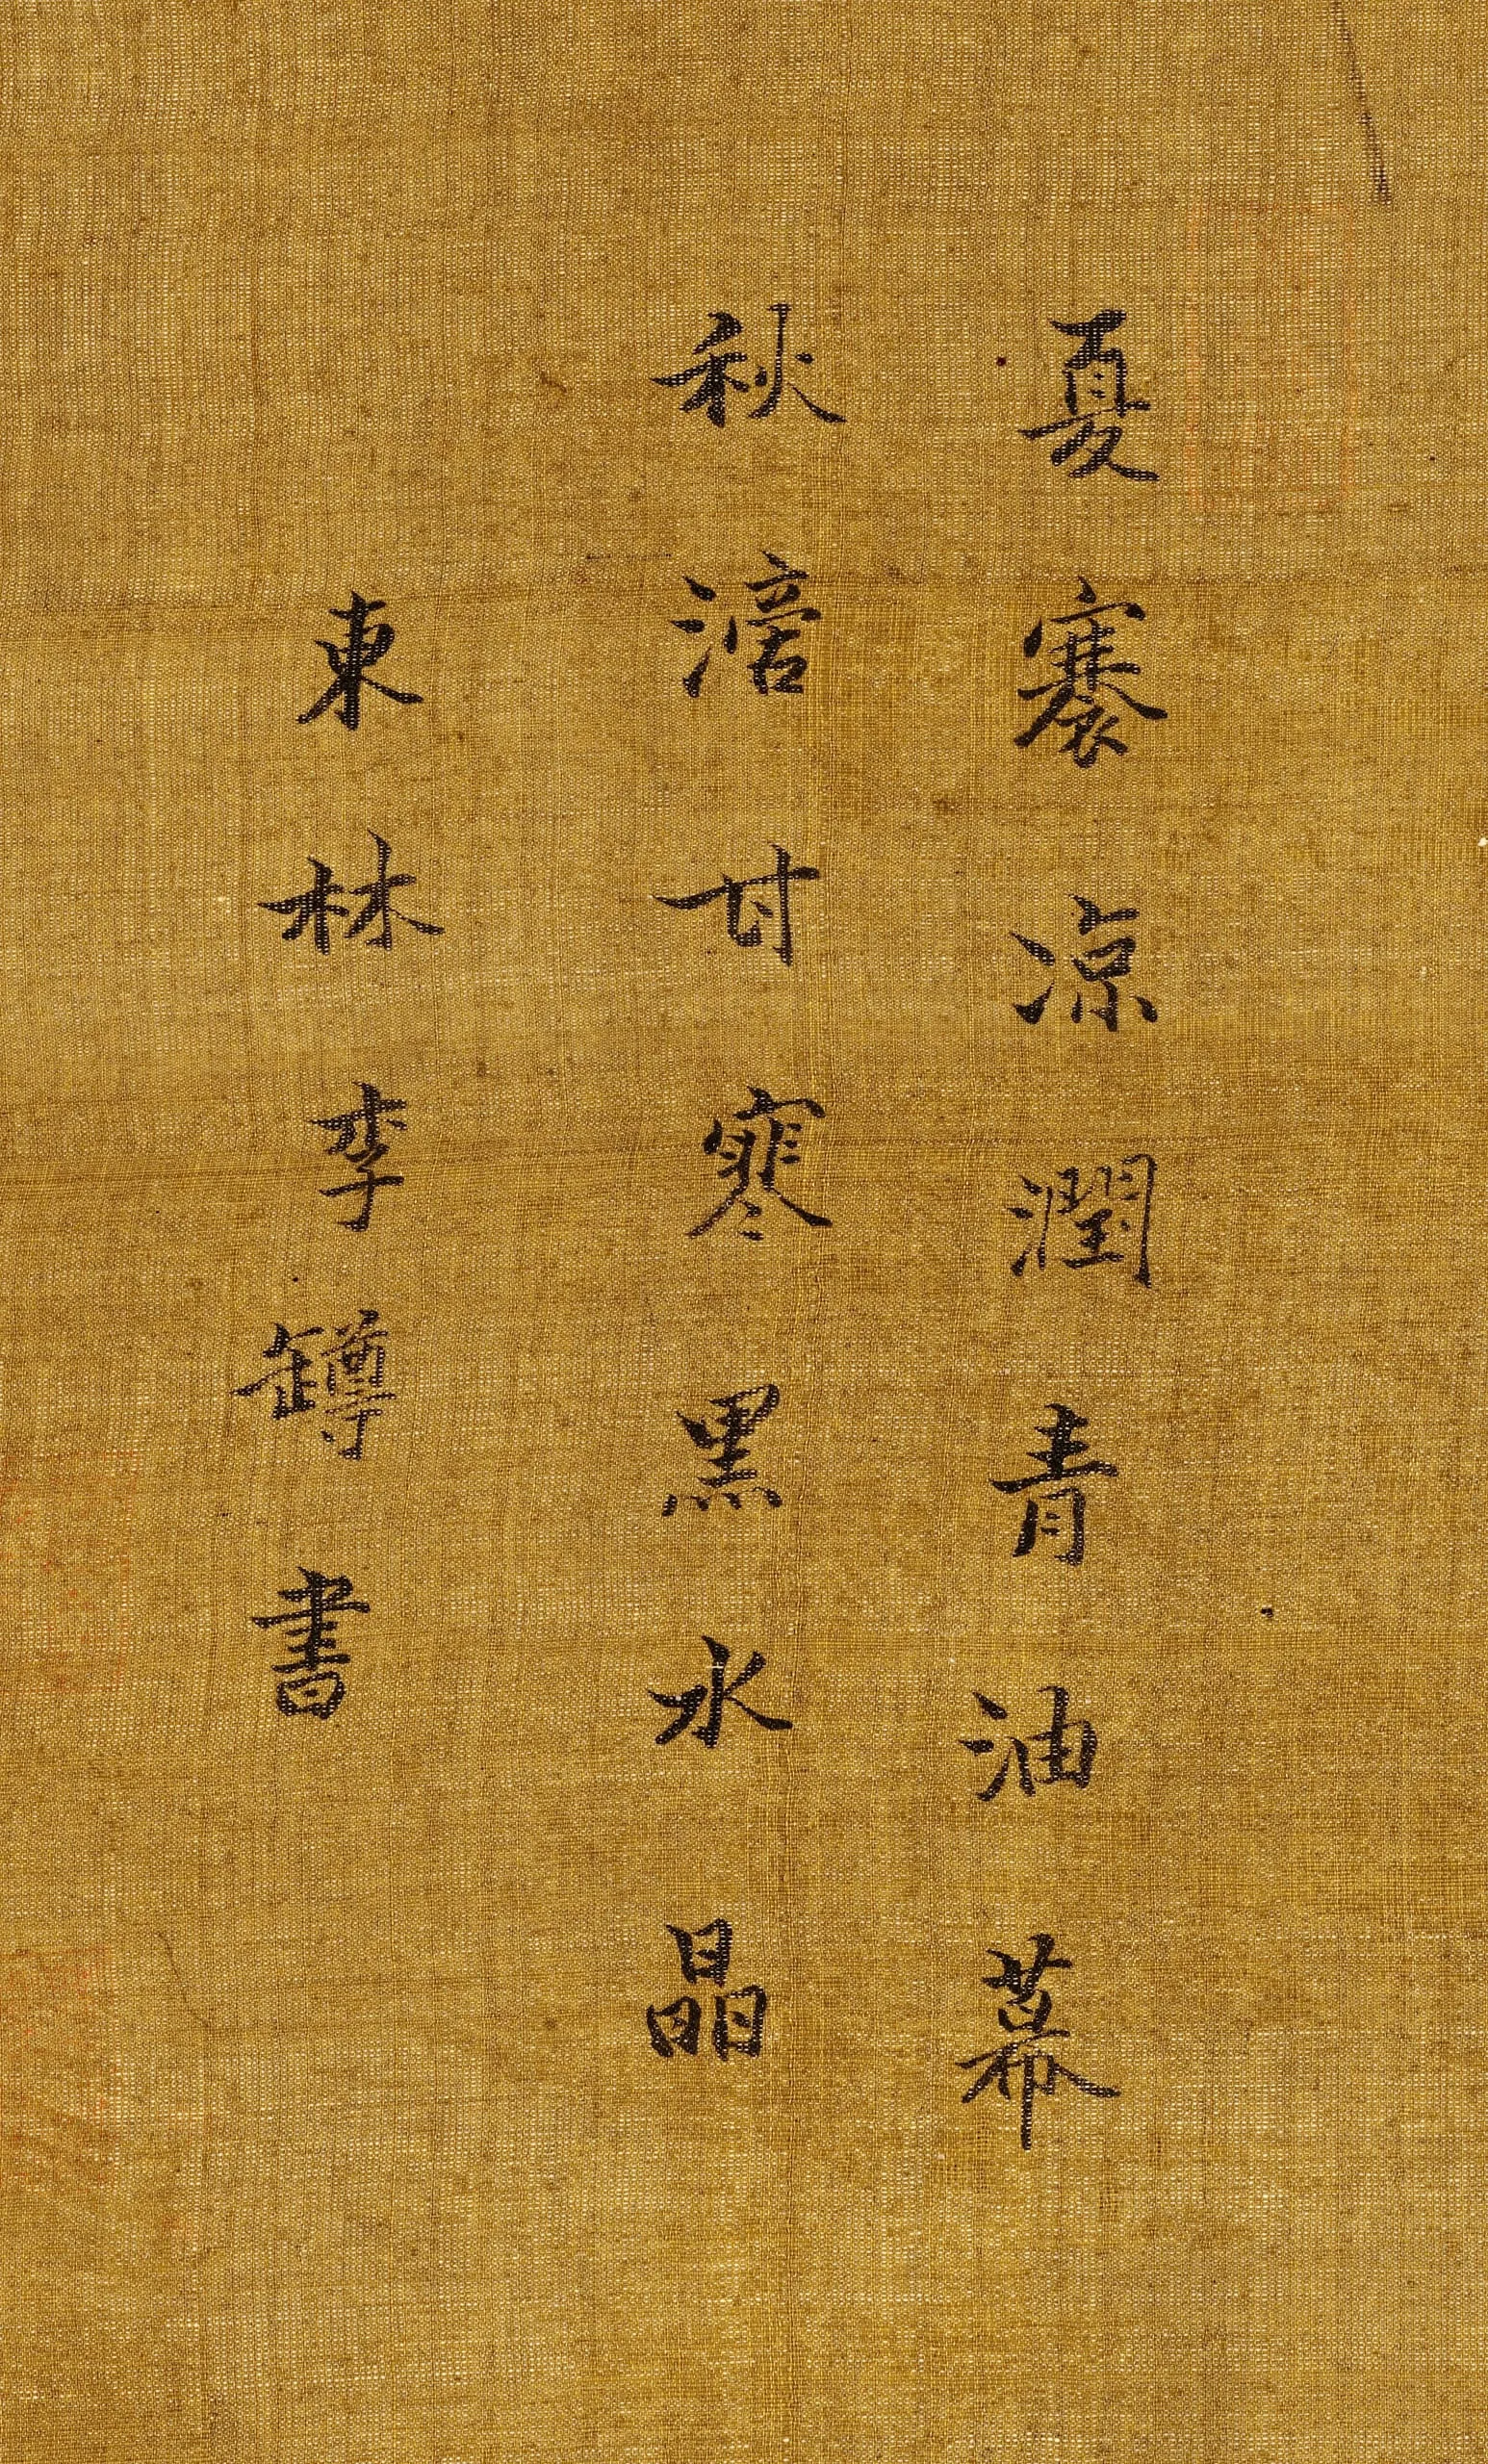 夏褰凉潤青油幕
秋滴甘寒黑水晶
東林李罇書